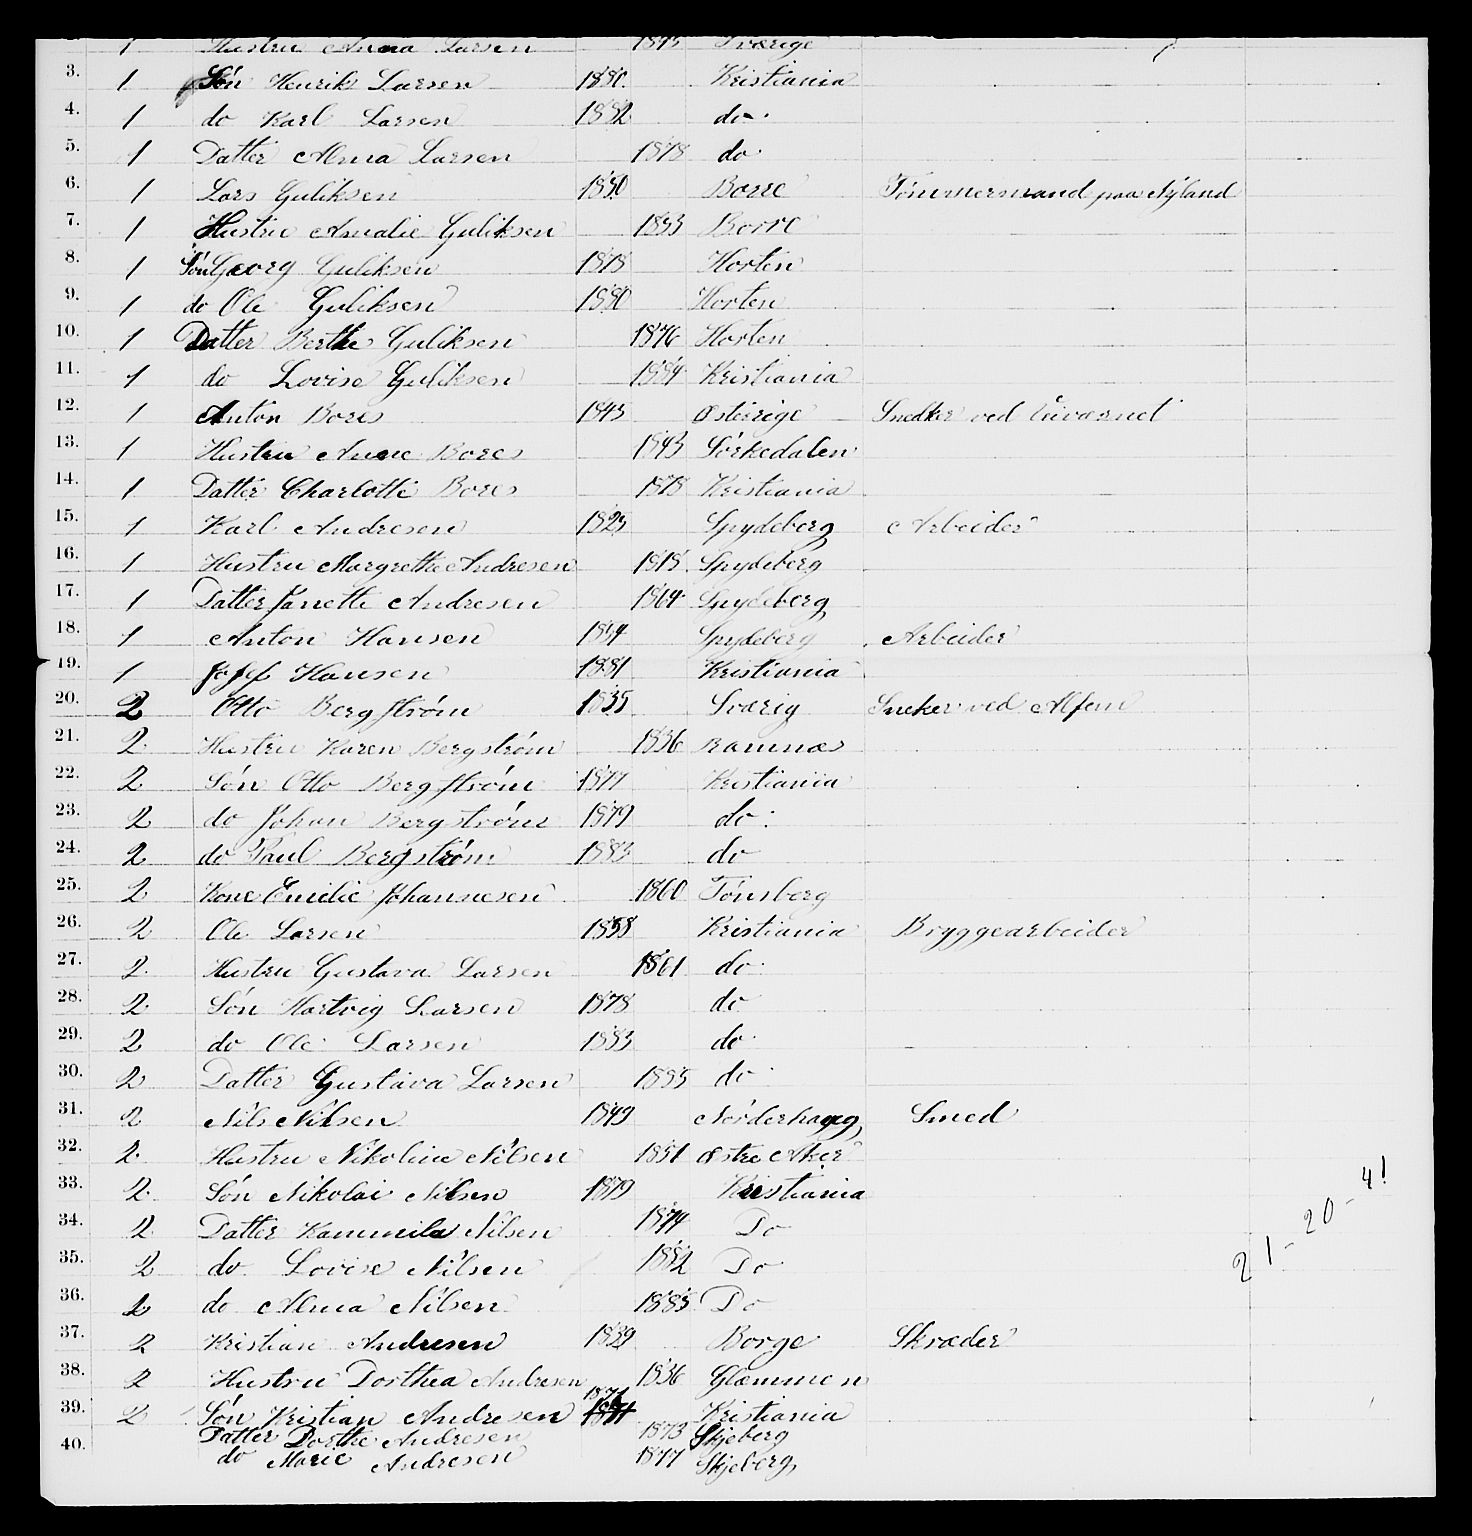 1 Hustru Anna Larsen 1845 Sværige
3. 1 Søn Henrik Larsen 1880. Kristiania
4. 1 do Karl Larsen 1882 do.
5. 1 Datter Alma Larsen 1878 do.
6. 1 Lars Guliksen 1850 Borre Tømmermand paa Nyland
7. 1 Hustru Amalie Guliksen 1853 Borre
8. 1 Søn Georg Guliksen 1878 Horten
9. 1 do Ole Guliksen 1880 Horten
10. 1 Datter Berthe Guliksen 1876 Horten
11. 1 do Lovise Guliksen 1884 Kristiania
12. 1 Anton Bores 1845 Østerige Snedker ved
13. 1 Hustru Anne Bores 1843 Sørkedalen
14. 1 Datter Charlotte Bores 1878 Kristiania
15. 1 Karl Andresen 1825 Spydeberg Arbeider
16. 1 Hustru Margrethe Andresen 1818 Spydeberg
17. 1 Datter Janette Andresen 1864 Spydeberg
18. 1 Anton Hansen 1854 Spydeberg Arbeider
19. 1 Josef Hansen 1881 Kristiania
20. 2 Otto Bergstrøm 1835 Sværig Sneker ved
21. 2 Hustru Karen Bergstrøm 1836 Ramnæs
22. 2 Søn Otto Bergstrøm 1877 Kristiania
23. 2 do Johan Bergstrøm 1879 do.
24. 2 do Paul Bergstrøm 1883 do
25. 2 Kone Emilie Johannesen 1860 Tønsberg
26. 2 Ole Larsen 1858 Kristiania Bryggearbeider
27. 2. Hustru Gustava Larsen 1861 do.
28. 2 Søn Hartvig Larsen 1878 do
29. 2 do Ole Larsen 1883 do.
30. 2 Datter Gustava Larsen 1885 do.
31. 2 Nils Nilsen 1849 Smed
32. 2. Hustru Nikoline Nilsen 1851 Østre Aker
33. 2. Søn Nikolai Nilsen 1879 Kristiania
34. 2 Datter Kammila Nilsen 1874 Do
35. 2 do. Lovise Nilsen 1882 Do
36. 2 do Alma Nilsen 1885 Do
21-20-41
37. 2 Kristian Andresen 1839 Borge Skræder
38. 2 Hustru Dorthea Andresen 1836 Glæmmen
39. 2 Søn Kristian Andresen 1871 Kristiania
Datter Dorthe Andresen 1873 Skjeberg
40. do Marie Andresen 1877 Skjeberg